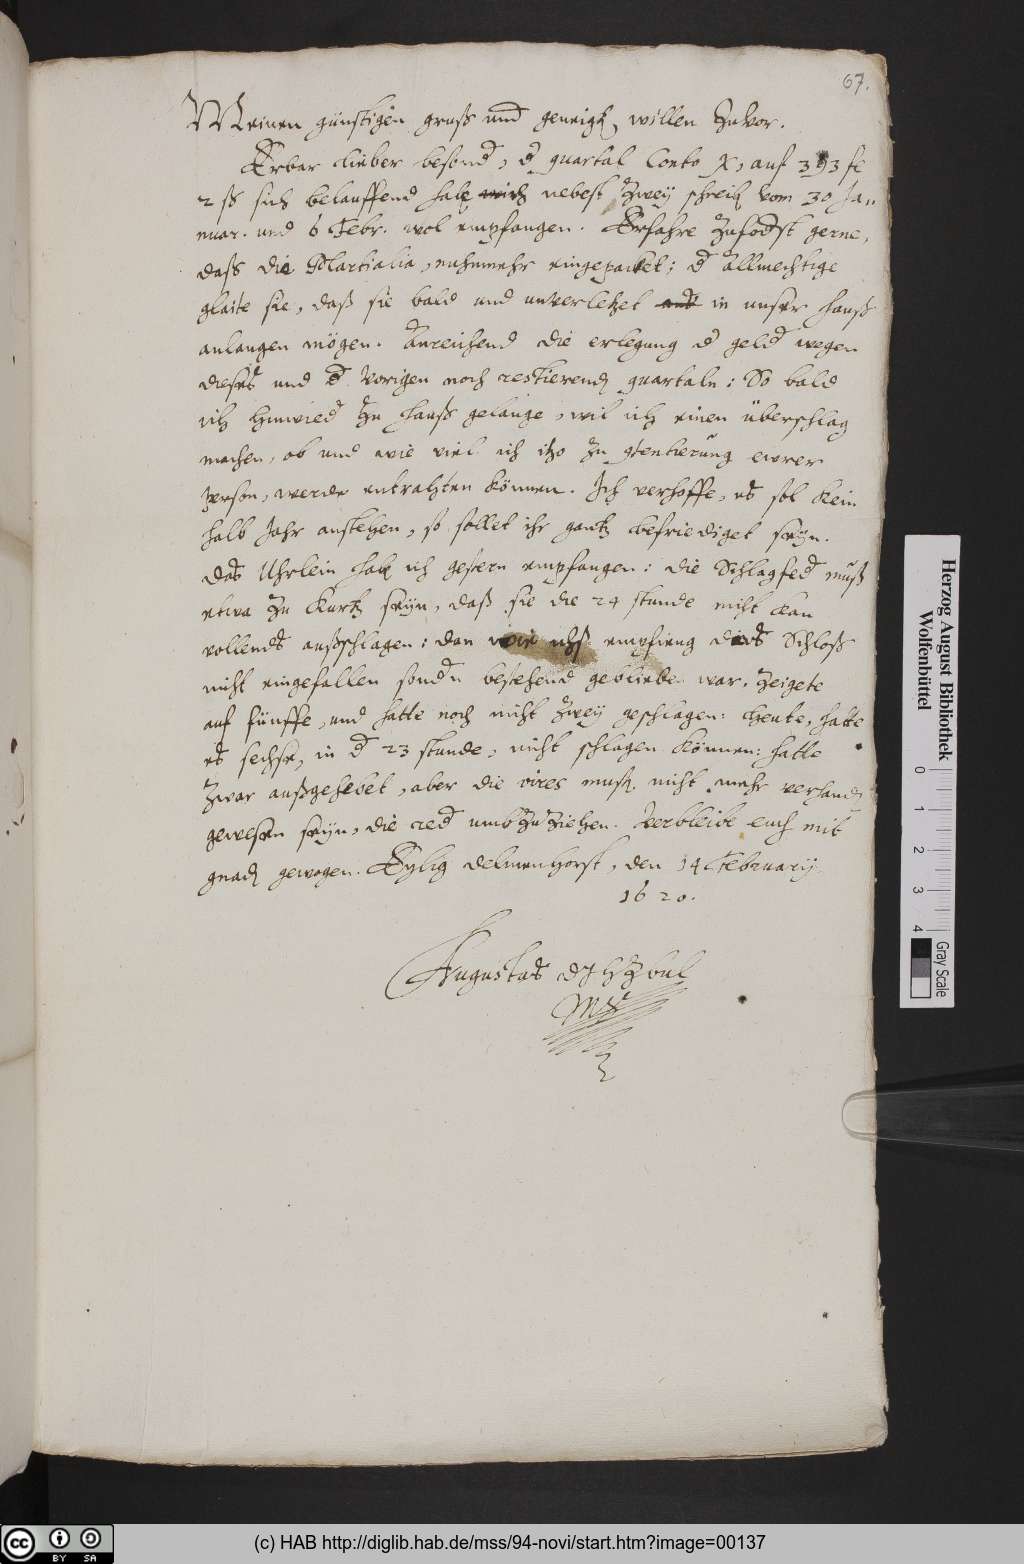 67.
Meinen günstigen gruß und geneigt. willen zuvor.
Erbar lieber besond., d. quartal Conto X, auf 393 fl
2 ß sich belauffend hab ich nebest zwey schreib. vom 30 Ja-
nuar. und 6 Febr. wol empfangen. Erfahre zufodst gerne,
dass die Martialia, nuhnmehr eingepacket; d. Allmechtige
glaite sie, daß sie bald und unverletzet in unser hauß
anlangen mögen. Anreichend die erlegung d. geld. wegen
dieses und d. vorigen noch restierend. quartaln: So bald
ich hinwied. zu hauß gelange, wil ich einen überschlag
machen, ob und wie viel ich itzo zu contentierung ewrer
person, werde entrahten können. Ich verhoffe, es sol kein
halb Jahr anstehen, so sollet ihr gantz befriediget seyn.
Das Uhrlein hab ich gestern empfangen: die Schlagfed. muß
etwa zu kurtz seyn, daß sie die 24 stunde nicht kan
vollends außschlagen: dan wie ichs empfieng das Schloß
nicht eingefallen sondn bestehend geblieben war. Zeigete
auf fünffe, und hatte noch nicht zwey geschlagen: heute, hatte
es sechse, in d. 23 stunde, nicht schlagen können: hatte
zwar außgehebet, aber die vires muß. nicht mehr verhand.
gewesen seyn, die red. umbzuziehen. Verbleibe euch mit
gnad. gewogen. Eylig delmenhorst, den 14 February
1620.
Augustus d J H Z B u L
Mpp
Herzog August Bibliothek
Wolfenbüttel
0 1 2 3 4
Gray Scale
cc BY SA
(c) HAB http://diglib.hab.de/mss/94-novi/start.htm?image=00137